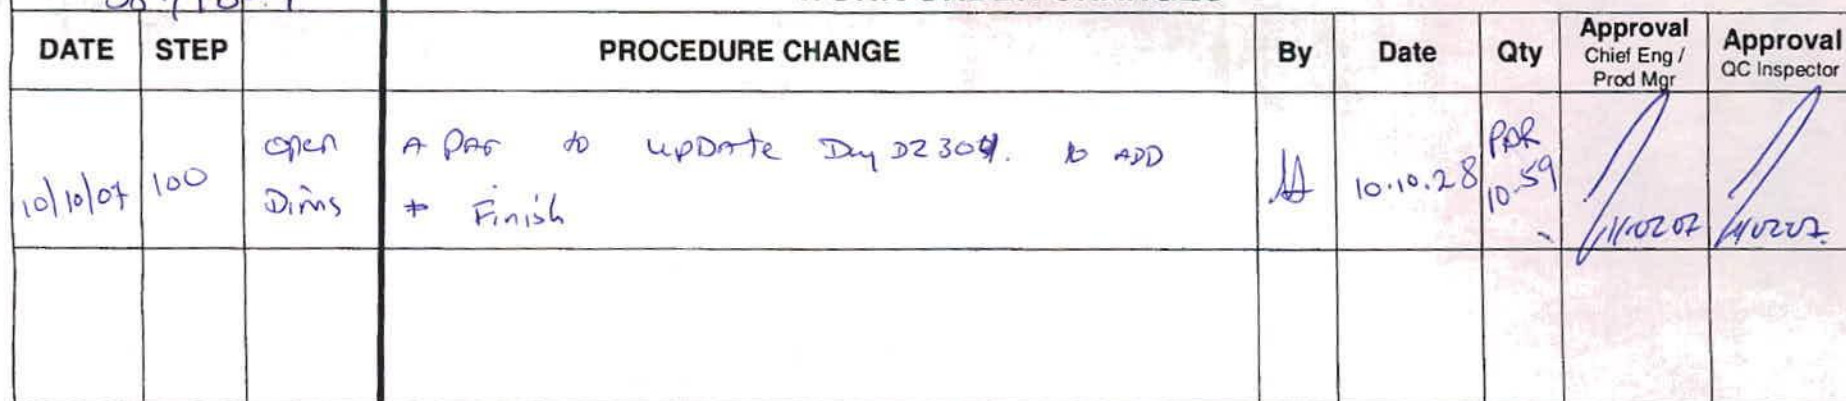 DATE STEP PROCEDURE CHANGE By Date Qty Approval Chief Eng / Prod Mgr Approval QC Inspector
10/10/07 100 open A PAR to UPDATE D2304. to ADD 10.10.28 PAR 10-59 11/02/07
Dims + Finish